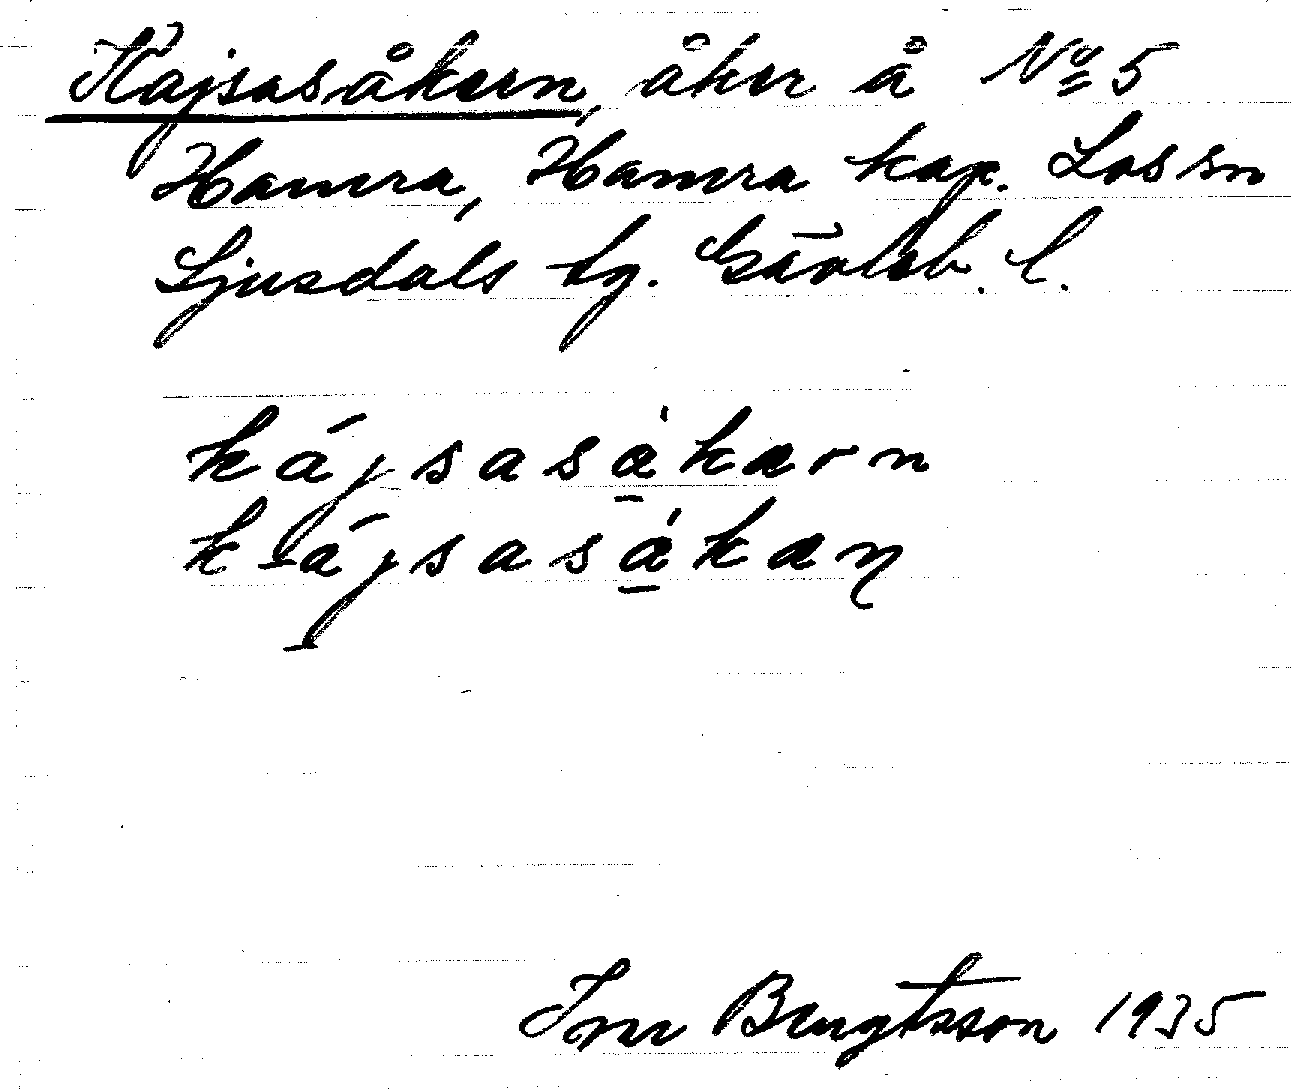 Kajsasåkern, åker å No 5
Hamra, Hamra kap. Los sn
Ljusdals tg. Gävleb. l.
kájsasàkærn
kájsasàkæɳ
Bengtsson 1935